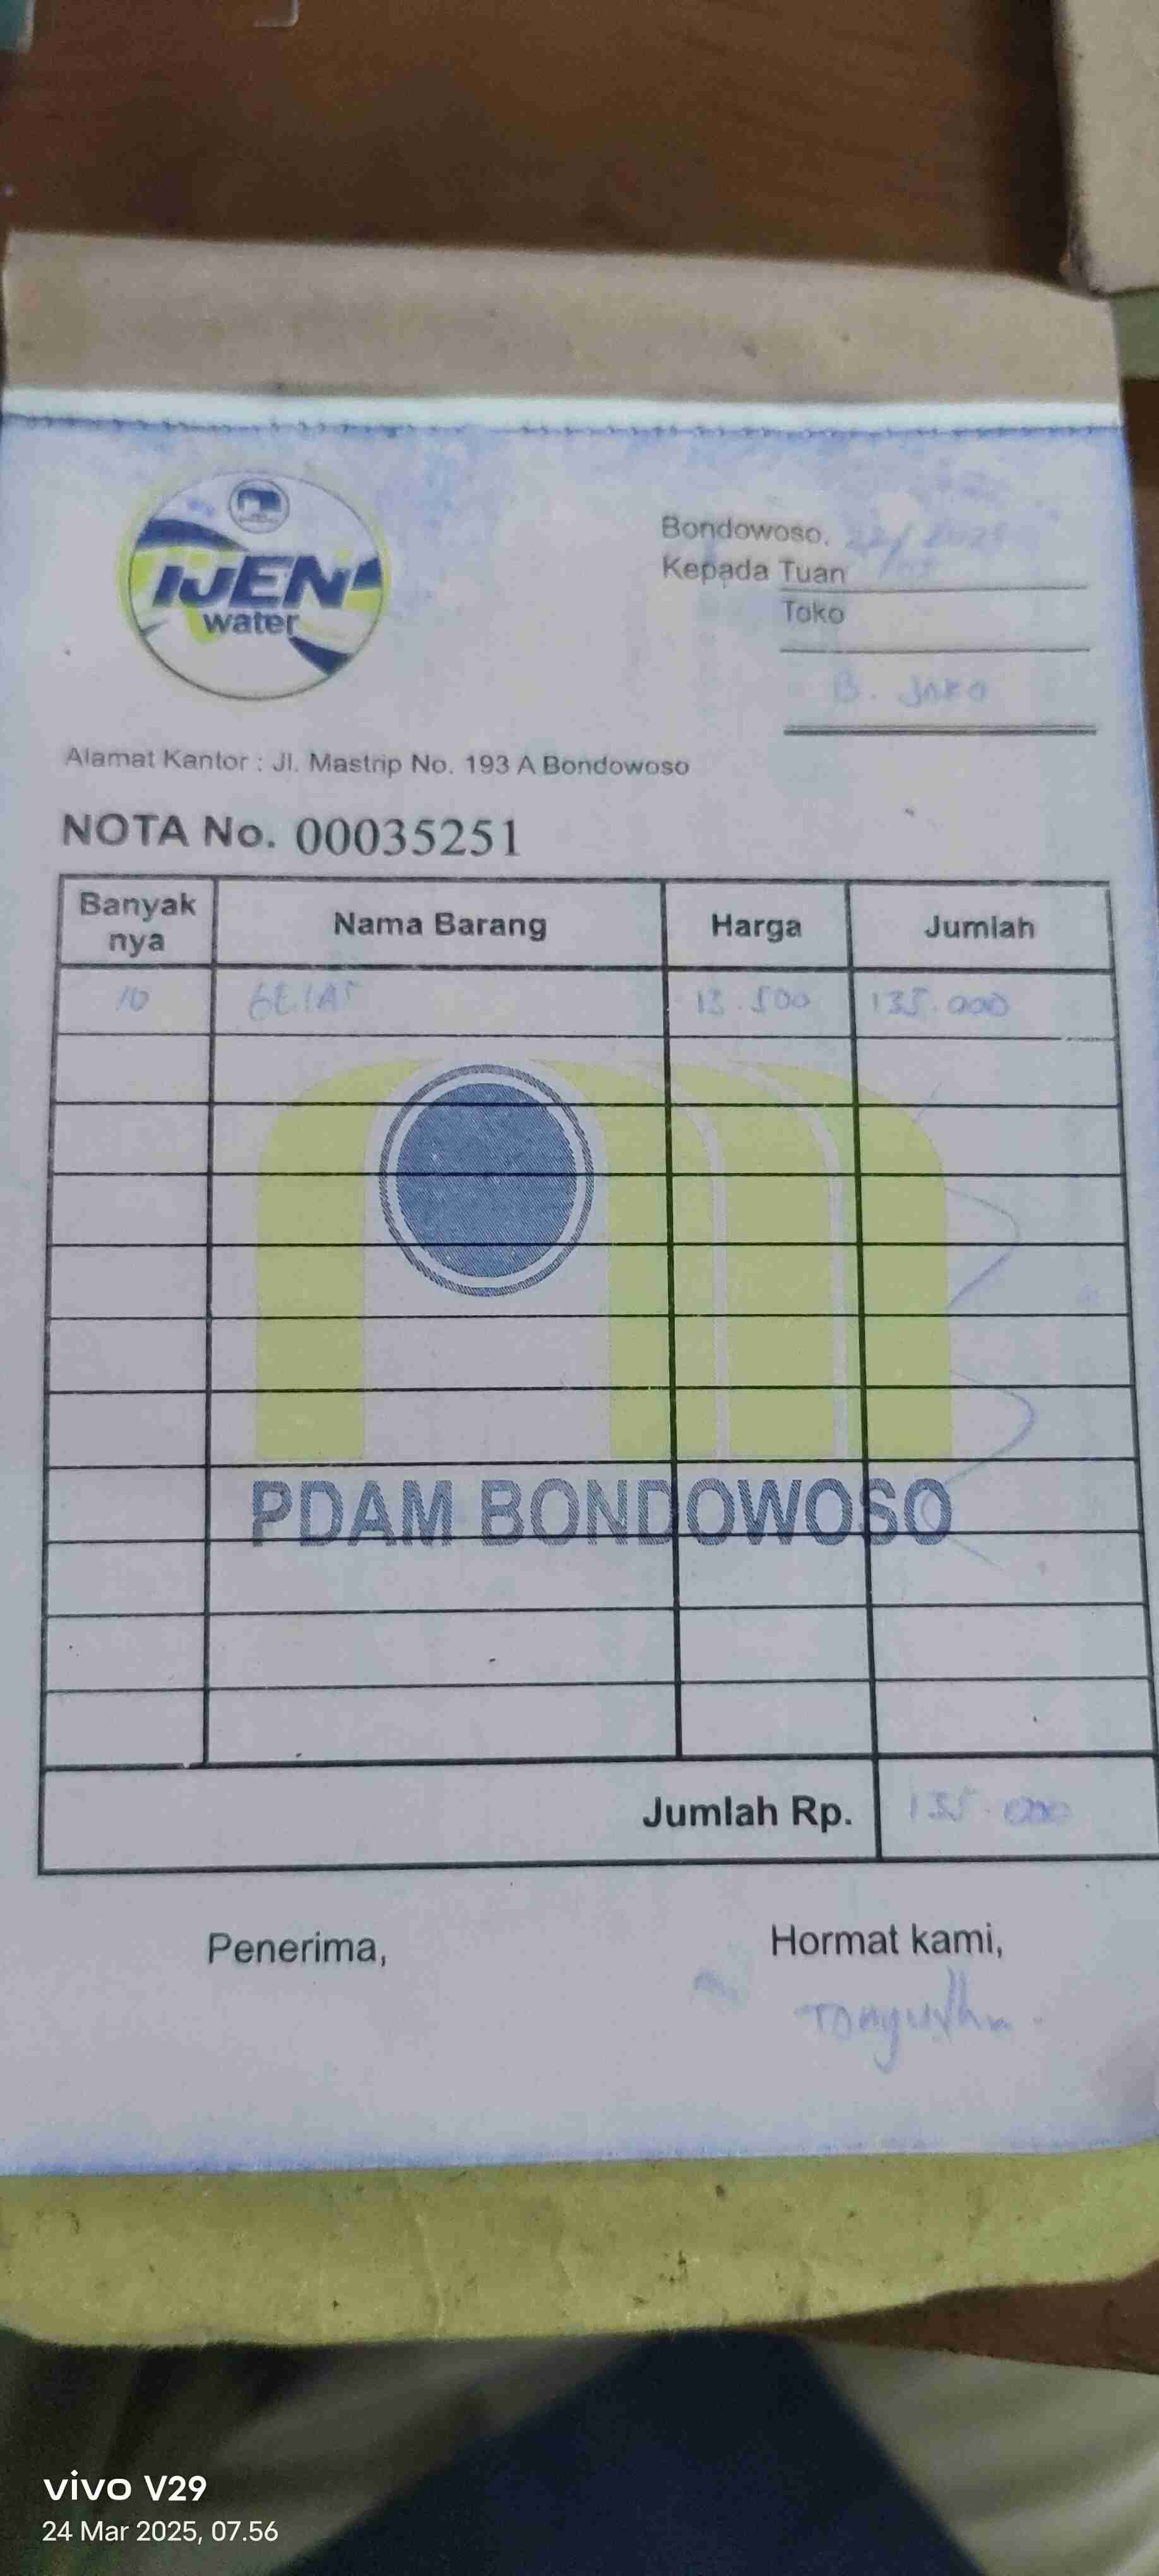 IJEN
water
Bondowoso, 22/ 2025
Kepada Tuan
Toko
B. Joko
Alamat Kantor : Jl. Mastrip No. 193 A Bondowoso
NOTA No. 00035251
Banyak nya Nama Barang Harga Jumlah
10 GELAS 13.500 135.000
PDAM BONDOWOSO
Jumlah Rp. 135.000
Penerima, Hormat kami,
vivo V29
24 Mar 2025, 07.56